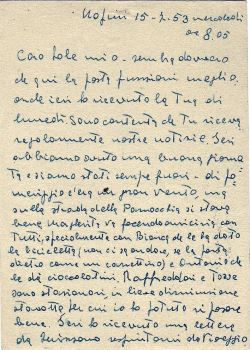 15-2-53 mercoledì
ore 8.05
Caro mio - sembra davvero
che qui la posta funzioni meglio.
anche ieri ho ricevuto la Tua di
lunedì. Sono contenta che Tu riceva
regolarmente nostre notizie. Ieri
abbiamo avuto una buona giorna
ta e siamo stati sempre fuori - di po
meriggio c'era un gran vento, ma
sulla strada della si stava
bene. Margherita va facendo amicizia con
tutti, specialmente con Bianca che le ha dato
la bicicletta (non ci sa andare, se la porta
dietro come un carrettino) e Antonio che
le dà cioccolatini. Raffreddori e tosse
sono stazionari, in lieve diminuzione
stanotte per cui io ho potuto riposare
bene. Ieri ho ricevuto una lettera
da